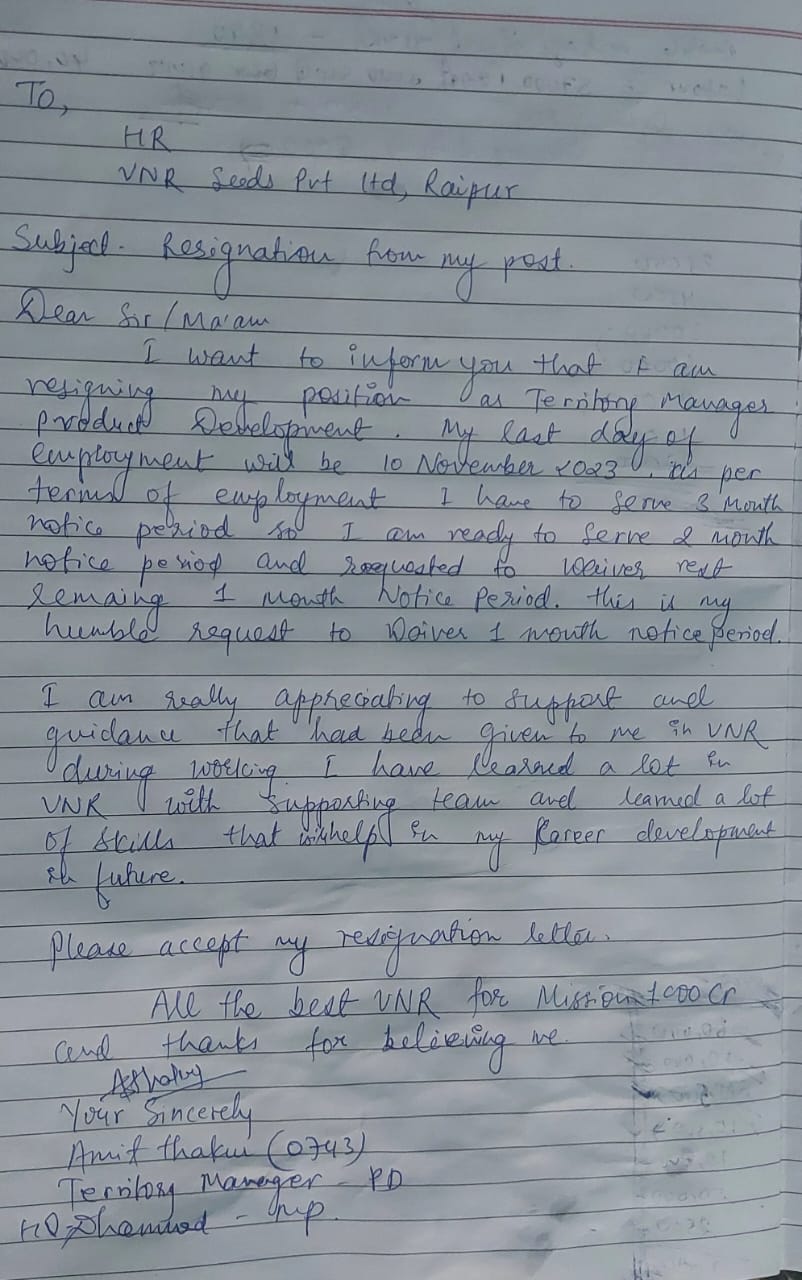 To,
HR
VNR Seeds Pvt ltd, Raipur
Subject. Resignation from my post.
Dear Sir / Ma'am
I want to inform you that I am
resigning my position as Territory Manager
product Development. My last day of
employment will be 10 November 2023. As per
terms of employment I have to serve 3 Month
notice period so I am ready to serve 2 month
notice period and requested to Waiver rest
remaing 1 Month Notice Period. this is my
humble request to Waiver 1 month notice period.
I am really appreciating to support and
guidance that had been given to me in VNR
during working I have learned a lot in
VNR with supporting team and learned a lot
of skills that will help in my Career development
in future.
Please accept my resignation letter.
All the best VNR for Mission 1000 Cr
and thanks for believing me.
Your Sincerely
Amit thakur (0743)
Territory Manager - PD
HQ - - mp.